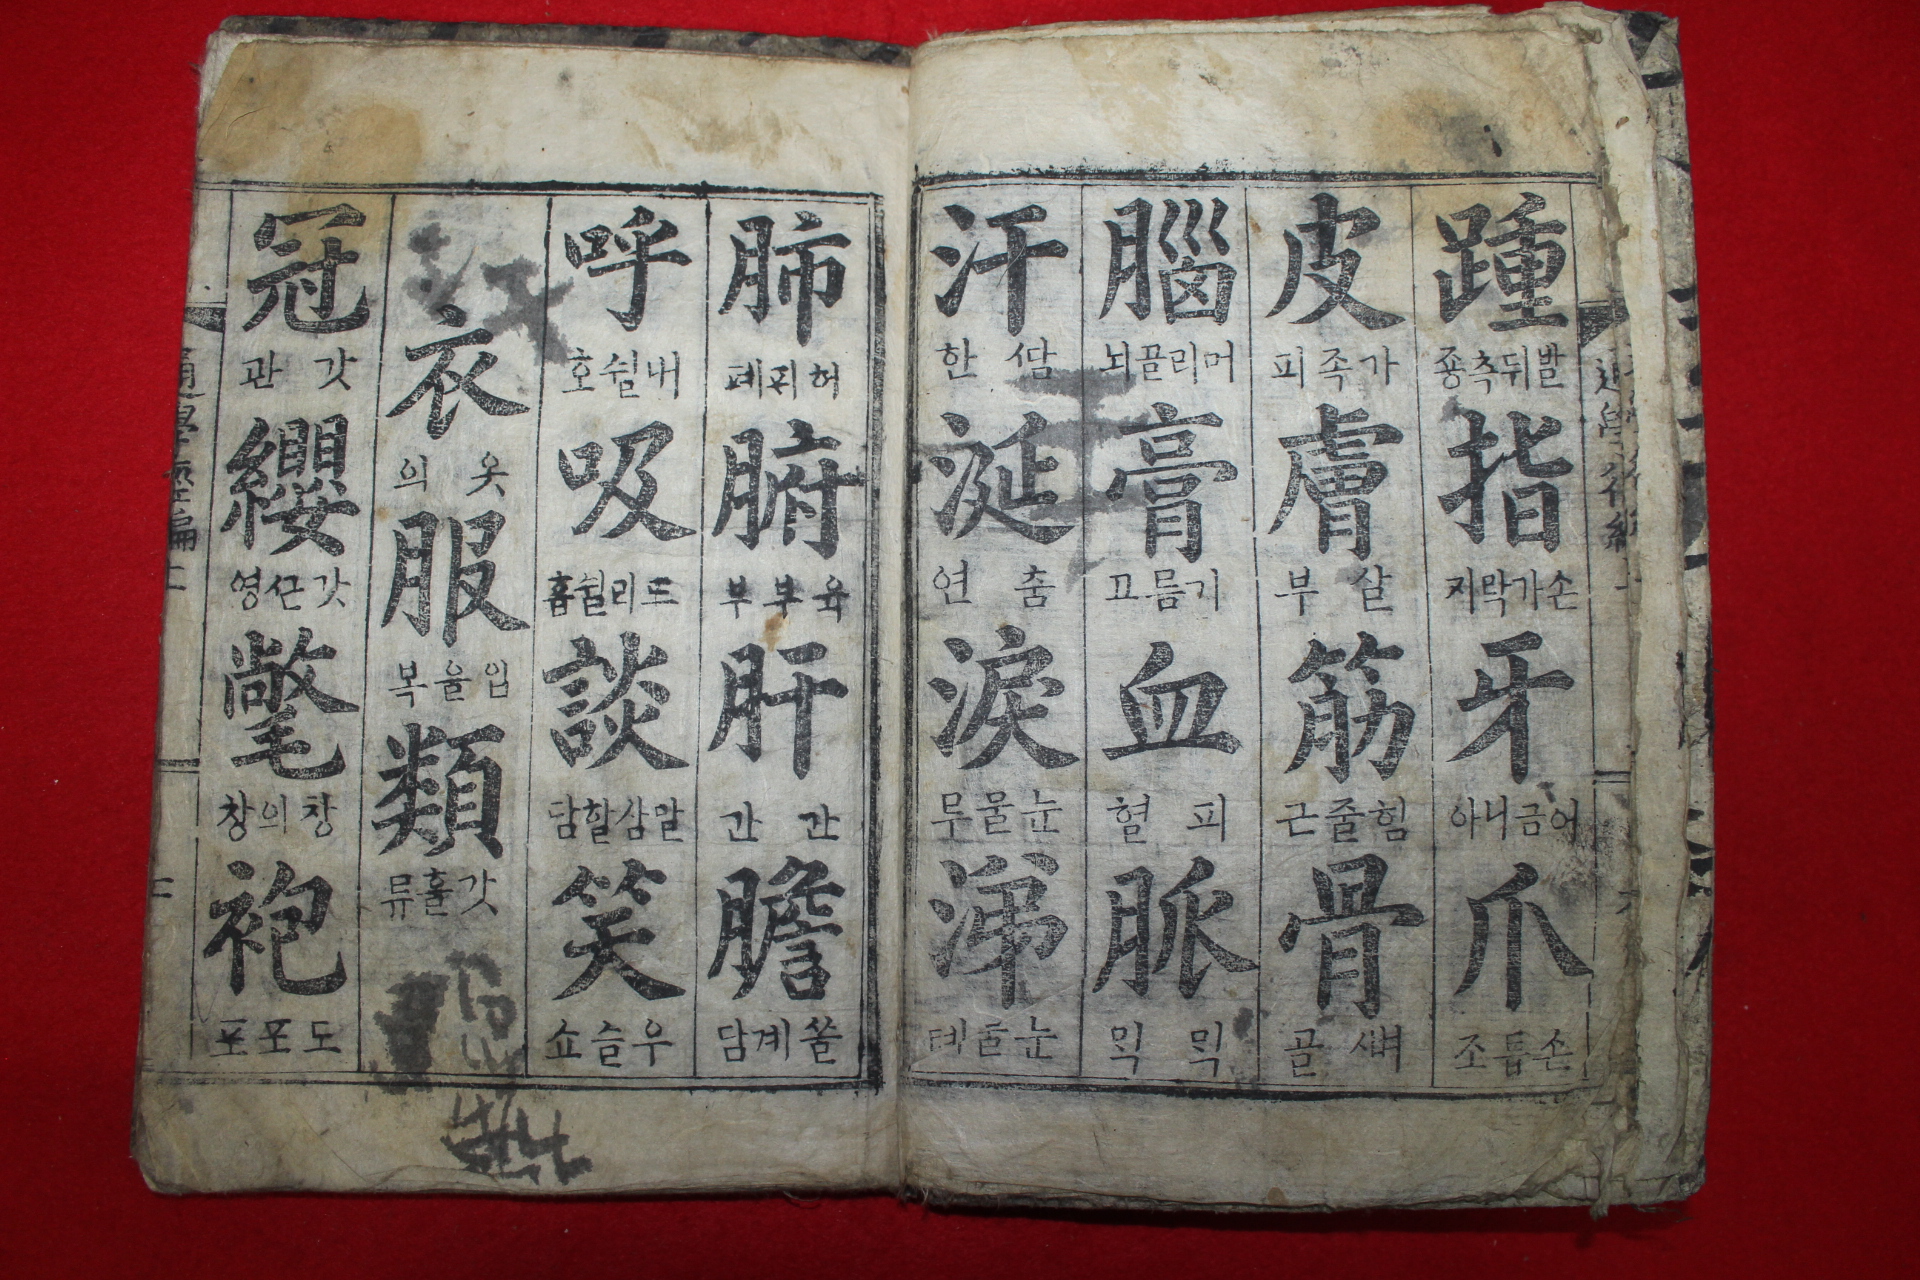 踵 발뒤측죵 指 손가락지 牙 어금니아 爪 손톱조
皮 가족피 膚 살부 筋 힘줄근 骨 ᄲᅧ골
腦 머리골뇌 膏 기름고 血 피혈 脈 믹믹
汗 ᄯᅡᆷ한 涎 춤연 淚 눈물루 涕 눈물톄
肺 허픠폐 腑 육부부 肝 간간 膽 쓸계담
呼 내쉴호 吸 드리쉴흡 談 말삼할담 笑 우슬쇼
衣 옷의 服 입을복 類 갓흘류
冠 갓관 纓 갓ᄭᅳᆫ영 氅 창의창 袍 도포포